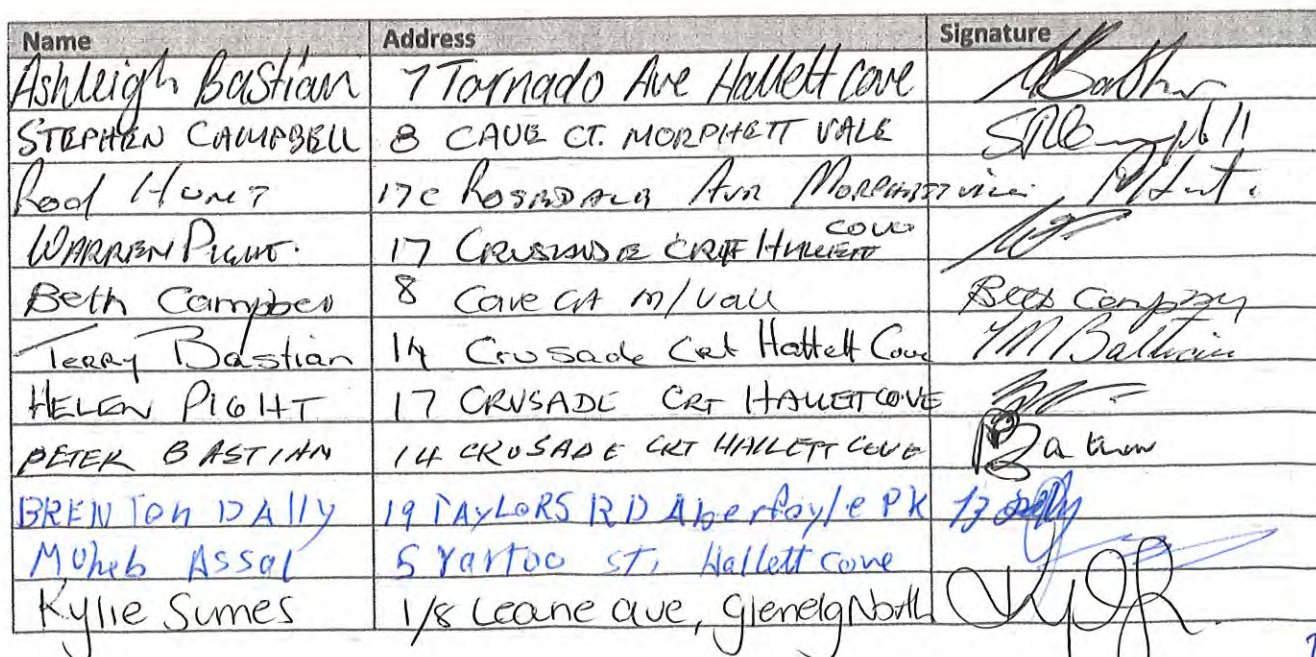 Name Address Signature
Ashleigh Bastian 7 Tornado Ave Hallett Cove
STEPHEN CAMPBELL 8 CAVE CT. MORPHETT VALE SRCampbell
Rod HUNT 17c ROSEDALE AVE MORPHETTVILLE
WARREN PIGHT. 17 CRUSADE CRT HALLETT COVE
Beth Campbell 8 Cave Ct M/Vale Beth
Terry Bastian 14 Crusade Crt Hallett Cove
HELEN PIGHT 17 CRUSADE CRT HALLETT COVE
PETER BASTIAN 14 CRUSADE CRT HALLETT COVE
BRENTON DAlly 19 TAYLORS RD Aberfoyle PK
Moheb Assal 5 Yartoo ST, Hallett Cove
Kylie Sumes 1/8 Leane ave, Glenelg North